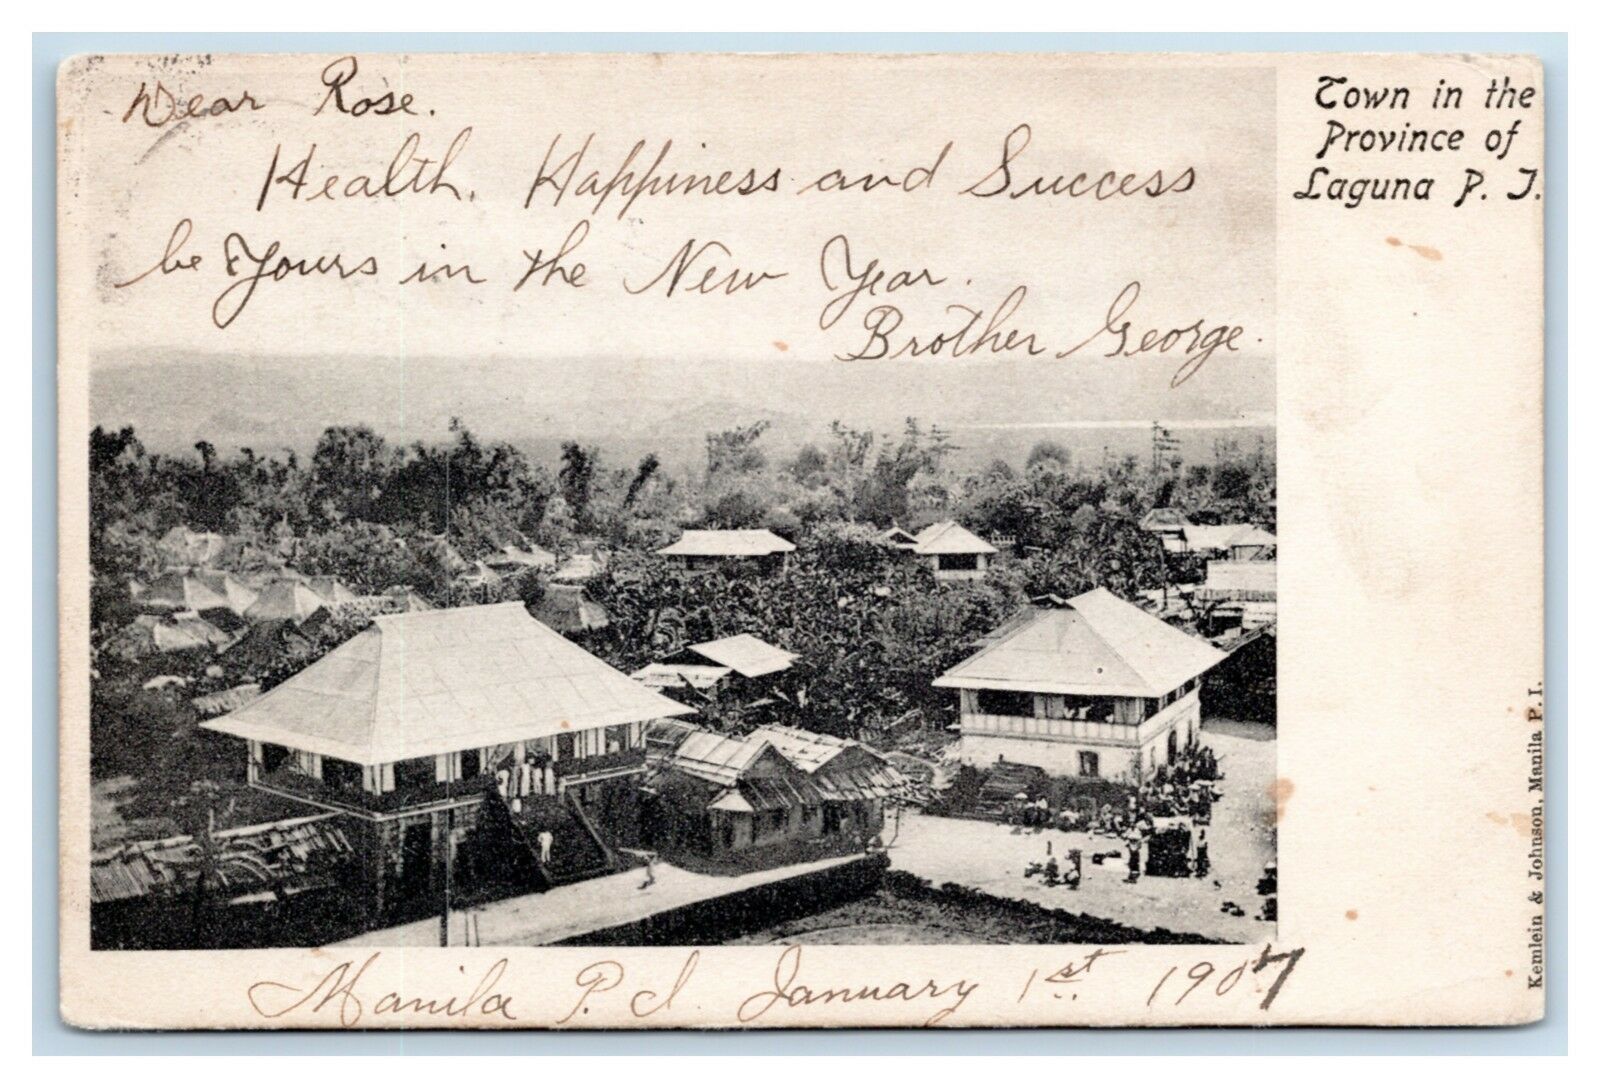 Dear Rose.
Health, Happiness and Success
be Yours in the New Year.
Brother George.
Town in the
Province of
Laguna P. I.
Kemlein & Johnson, Manila P. I.
Manila P. I. January 1st. 1907